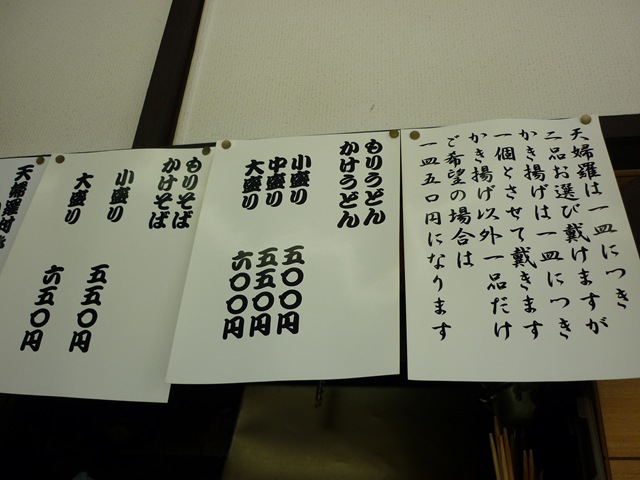 天婦羅は一皿につき
二品お選び戴けますが
かき揚げは一皿につき
一個とさせて戴きます
かき揚げ以外一品だけ
ご希望の場合は
一皿五〇円になります
もりうどん
かけうどん
小盛り 五〇〇円
中盛り 五五〇円
大盛り 六〇〇円
もりそば
かけそば
小盛り 五五〇円
大盛り 六五〇円
天婦羅付